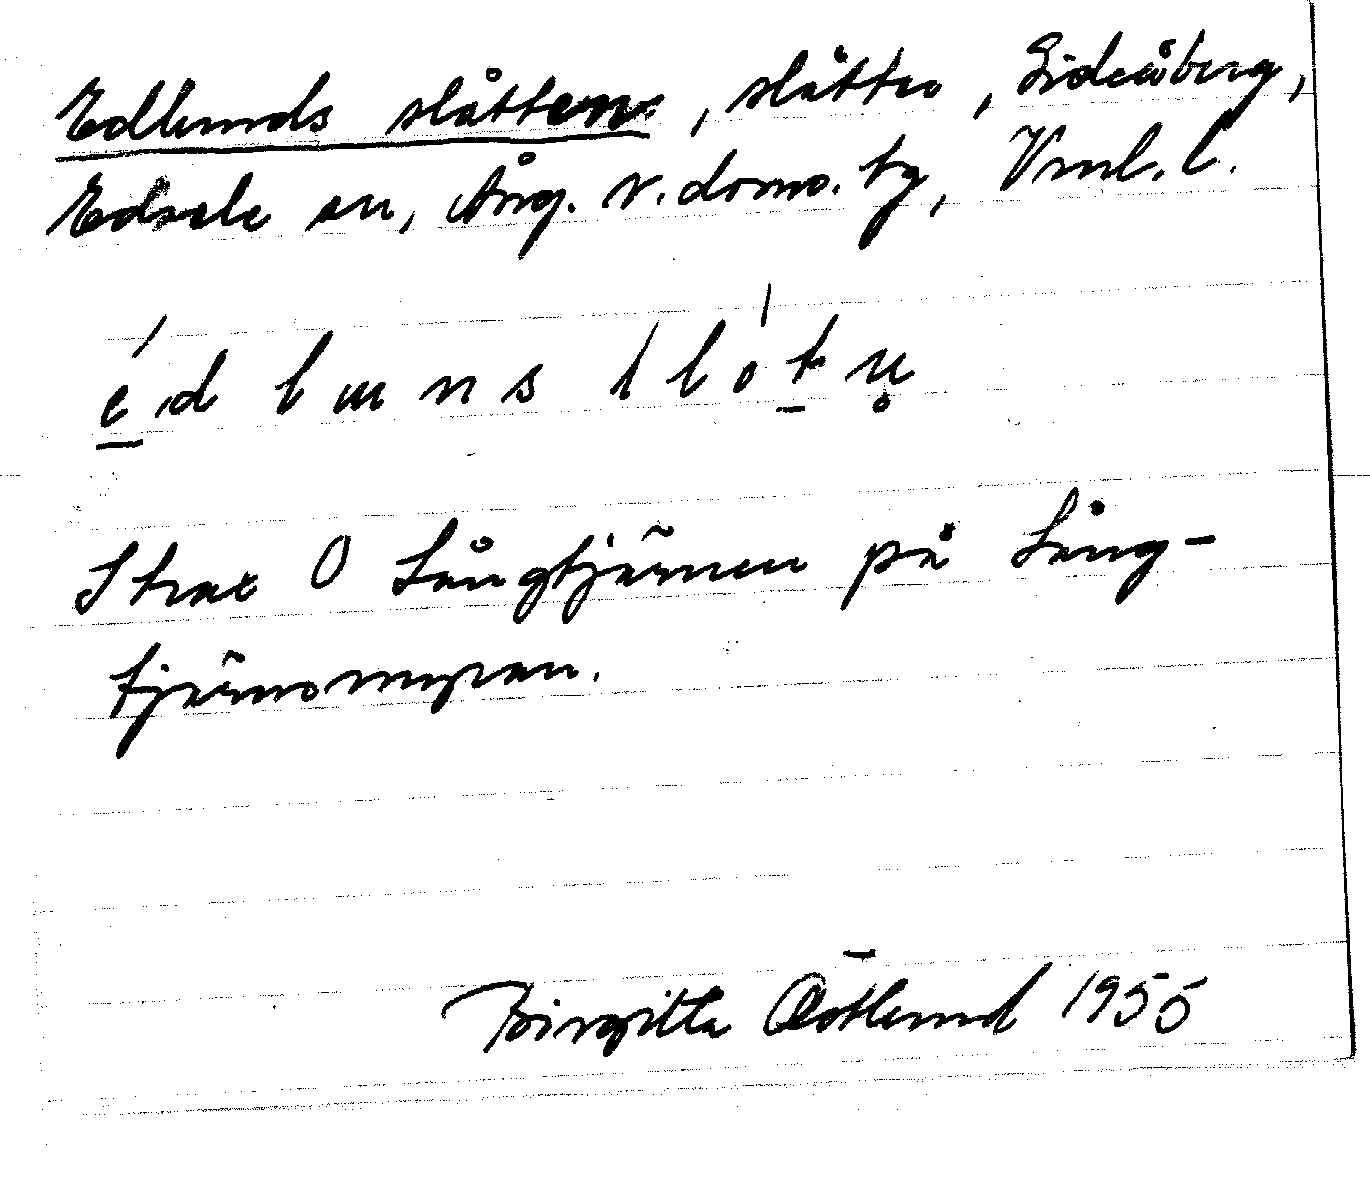 Edlunds slåtten, slåtter, Sidensberg,
Edsele sn, Ång. v. doms. tg, Vml. l.
Strax O Långtjärnen på Lång-
tjärnsmyran.
Birgitta Östlund 1955